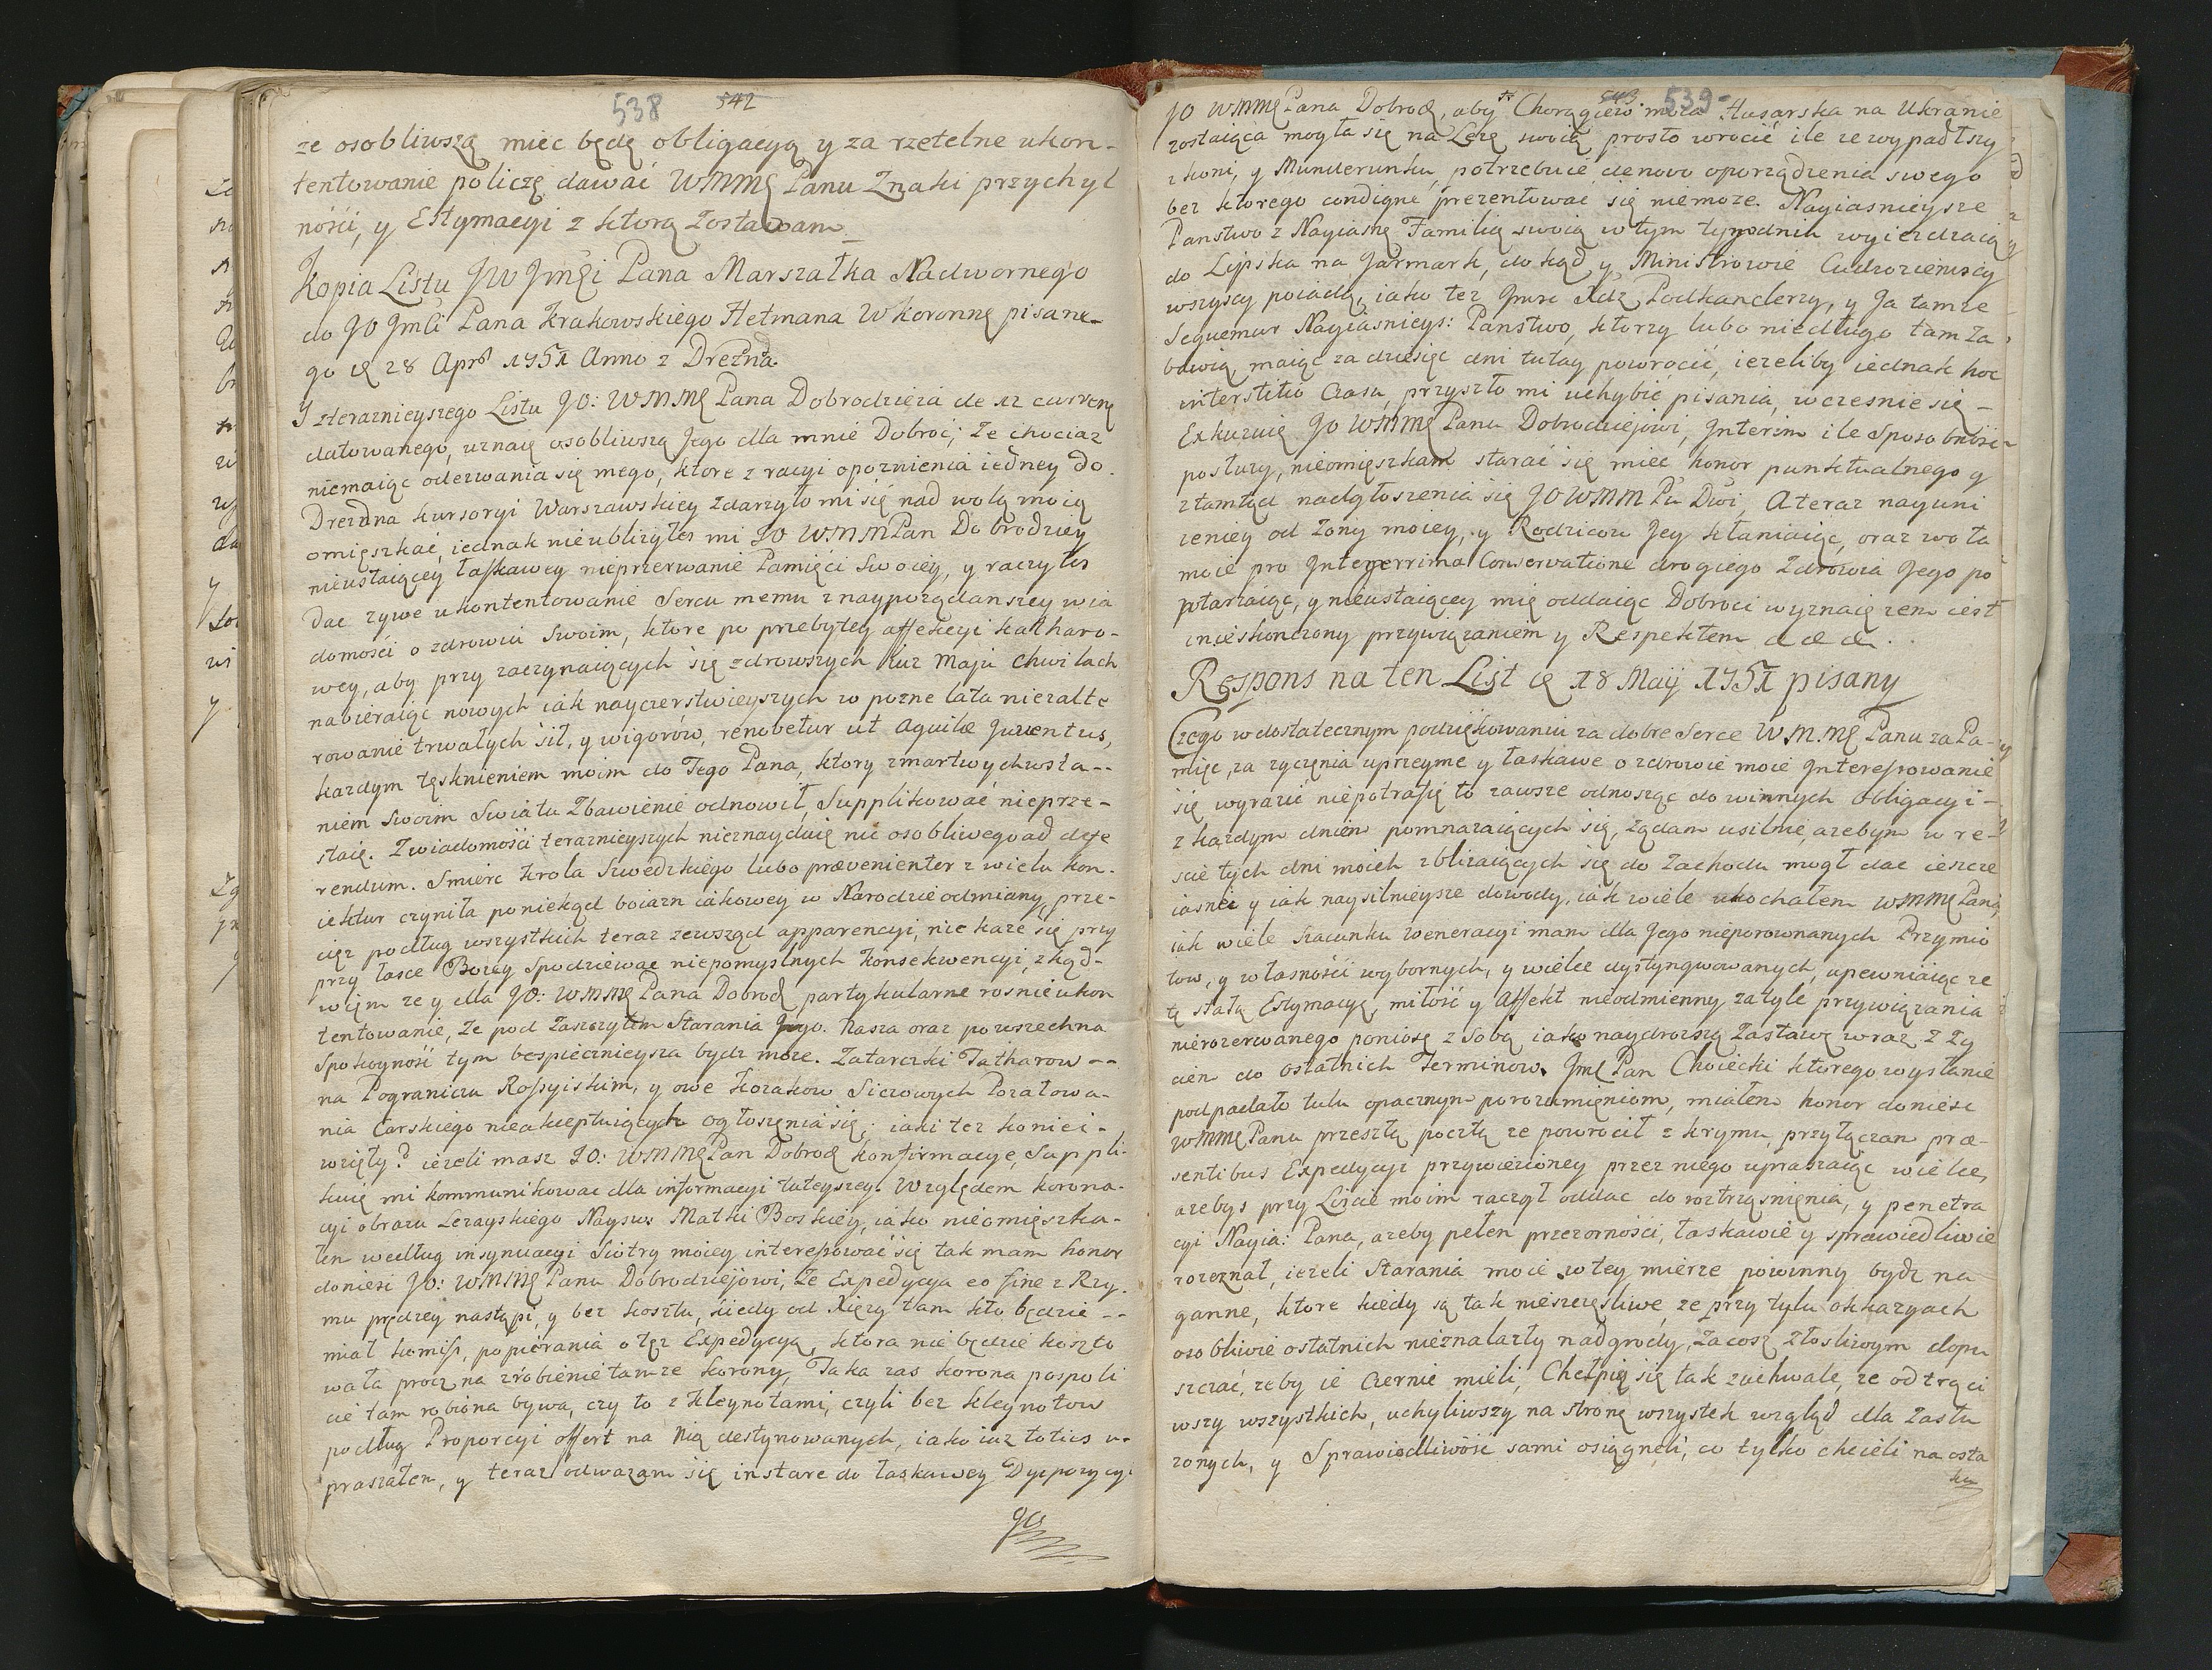 538 542
ze osobliwszą miec będę obligacyą y za rzetelne ukon-
tentowanie policzę dawać WMMę Panu Znaki przychyl
ności, y Estymacyi z ktorą zostawam
Kopia Listu JW Jmęi Pana Marszałka Nadwornego
do JO Jmći Pana Krakowskiego Hetmana W koronnę pisane-
go de 28 Apris 1751 Anno z Drezna
Z terazniejszego Listu JO: WMMę Pana Dobrodzieia de 12 currenę
datowanego, uznaię osobliwszą Jego dla mnie Dobroć; Ze chociaz
niemaiąc oderwania się mego, ktore z racyi opoznienia iedney do
Drezdna kursoryi Warszawskiey zdarzyło mi się nad wolą moią
omięszkać, iednak nieubliżyłeś mi JO WMMPan Dobrodziey
nieustaiącey łaskawey nieprzerwanie Pamięći Swoiey, y raczyłes
Dac zywe ukontentowanie Sercu memu z naypożądanszey wia
domości o zdrowiu Swoim, ktore po przebytey affekcyi katharo-
wey, aby przy zaczynaiących się zdrowszych iuz Maju chwilach
nabieraiąc nowych iak nayczerstwieyszych w pozne lata niezalte
rowanie trwałych sił, y wigorow, renovetur ut Aquilæ Juventus,
kazdym tęsknieniem moim do Tego Pana, ktory zmartwychwsta--
niem Swoim Swiatu Zbawienie odnowił, Supplikować nieprze-
staię. Z wiadomości terazniejszych nieznayduię nic osobliwego ad defe
rendum. Smierc krola Szwedzkiego lubo prævenienter z wielu kon-
iektur czyniła poniekąd boiazn iakowey w Narodzie odmiany, prze-
cięz podług wszystkich teraz zewsząd apparencyi, nie kaze się przy
przy łasce Bozey spodziewac niepomyslnych Konsekwencyi, zkąd-
wiem ze y dla JO: WMMę Pana Dobrodę partykularne rosnie ukon
tentowanie, Ze pod Zaszczytem Starania Jego. Nasza oraz powszechna
Spokoyność tym bespiecznieysza bydz moze. Zatarczki Tatharow --
na Pograniczu Rossyiskim, y owe Kozakow Siczowych Poratowa-
nia Carskiego nieakceptuiących ogłoszenia się; iaki tez koniec-
wzięły? iezeli masz JO: WMMę Pan Dobrodę konfirmacyę, Suppli-
kuię mi kommunikowac dla informacyi tuteyszey. Względem korona-
cyi obrazu Lezayskiego Nayśw: Matki Boskiey, iako nieomięszka-
łen według insynuacyi Siotry moiey interessować się tak mam honor
doniesc JO: WMMę Panu Dobrodziejowi, Ze Expedycya eo fine z Rzy-
mu prędzey nastąpi, y bez kosztu, kiedy od Xięzy tam kto będzie --
miał kommiss, popierania otęz Expedycyą, ktora nie będzie koszto
wała procz na zrobienie tamze korony, Taka zas korona pospoli
cie tam robiona bywa, czy to z kleynotami, czyli bez kleynotow
podług Proporcyi offert na nią destynowanych, iako iuz toties u-
praszałen, y teraz odwazam się instare do łaskawey Dyspozycyi
JO
543 539-
JO WMMę Pana Dobrodę, aby Chorągiew moia Husarska na Ukrainie
zostaiąca mogła się na Lezę swoią prosto wrocić ile ze wypadłszy
z koni, y Munderunku, potrzebuie denovo oporządzenia swego
bez ktorego condigne prezentować się niemoze. Nayiasnieysze
Panstwo z Nayiasnę Familią swoią w tym tygodniu wyiezdzaią
do Lipska na Jarmark, dokąd y Ministrowie Cudzoziemscy
wszyscy poiadą, iako tez Jmsc Xdz Podkanclerzy, y Ja tamze
Sequemur Nayiasnieys: Panstwo, ktorzy lubo niedługo tam za-
bawią, maiąc za dziesięc dni tutay powrocić, iezeliby iednak hoc
interstitio czasu, przyszło mi uchybić pisania, wczesnie się -
Exkuzuię JO WMMę Panu Dobrodziejowi, Interim ile Sposobności
postuzy, nieomięszkam starać się miec honor punktualnego y
ztamtąd nadgłoszenia się JO WMM Pu Dwi, A teraz nayuni
zeniey od Zony moiey, y Rodzicow Jey kłaniaiąc, oraz wota
moie pro Integerrima Conservatione drogiego Zdrowia Jego po
ptarzaiąc, y nieustaiącey mię oddaiąc Dobroci wyznaię zem iest
z nieskonczony przywiązaniem y Respektem &c &c &c.
Respons na ten List de 18 Maij 1751 pisany
Czego w dostatecznym podziękowaniu za dobre Serce WM.Mę Panu za Pa-
mięc, za zyczęnia uprzeyme y łaskawe o zdrowie moie Interessowanie
się wyrazić niepotrafię to zawsze odnosząc do winnych Obligacyi-
z kazdym dniem pomnazaiących się, ządam usilnie, azebym w re-
scie tych dni moich zbliraiących się do Zachodu mogł dac ieszcze
iasnei y iak naysilnieysze dowody, iak wiele ukochałem WMMę Pana,
iak wiele Szacunku weneracyi mam dla Jego nieporownanych Przymio
tow, y własności wybornych, y wielce dystyngwowanych, upewniaiąc ze
tę stałą Estymacyę, miłość y Affekt nieodmienny, zatyle przywiązania
nierozerwanego poniosę z Sobą iako naydrozszą Zastawę wraz z Zy
ciem do ostatnich Terminow. Jmę Pan Choiecki ktorego wysłanie
podpadało tulu opacznym porozumięniom, miałem honor doniesc
WMMę Panu przeszłą pocztą ze powrocił z krymu, przyłączam præ-
sentibus Expedycyi przywiezioney przez niego upraszaiąc wielce,
azebys przy Liscie moim raczył oddac do roztrząsnięnia, y penetra
cyi Nayia: Pana, azeby pełen przezorności, łaskawie y sprawiedliwie
rozeznał, iezeli Starania moie w tey mierze powinny bydz na
ganne, ktore kiedy są tak nieszczęsliwe, ze przy tylu okkazyach
osobliwie ostatnich nieznalazły nadgrody, Zacosz złosliwym dopu
szczać, zeby ie Czernic mieli, Chełpią się tak zuchwale, ze odtrąci
wszy wszystkich, uchyliwszy na stronę wszystek wzgląd dla Zasłu
zonych, y Sprawiedliwość sami osiągneli, co tylko chcieli na osta
ku